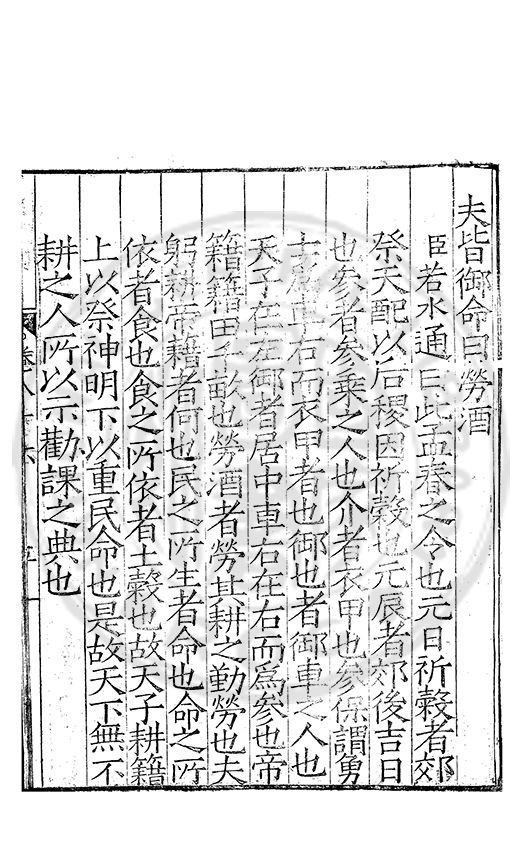 夫皆御命曰勞酒
臣若水通曰此孟春之令也元日祈糓者郊
祭天配以后稷因祈糓也元辰者郊後吉日
也參者參乗之人也介者衣甲也參保謂勇
士爲車右而衣甲者也御也者御車之人也
天子在左御者居中車右在右而爲參也帝
籍籍田千畝也勞酒者勞其耕之勤勞也夫
躬耕帝籍者何也民之所生者命也命之所
依者食也食之所依者土糓也故天子耕籍
上以祭神明下以重民命也是故天下無不
耕之人所以示勸課之典也
卷八